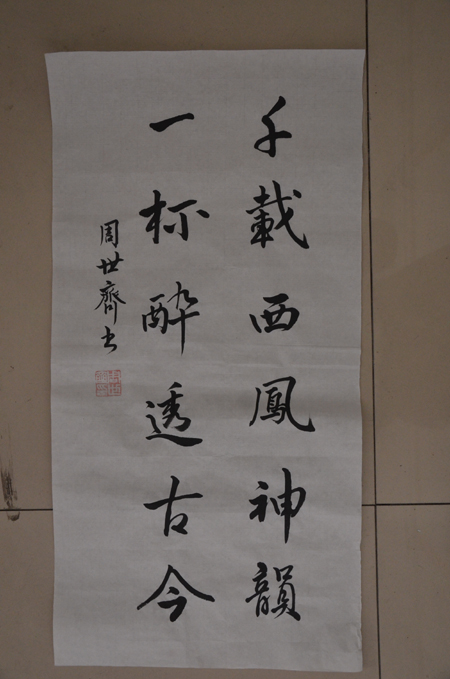 千載西鳳神韻
一杯醉透古今
周世齊书